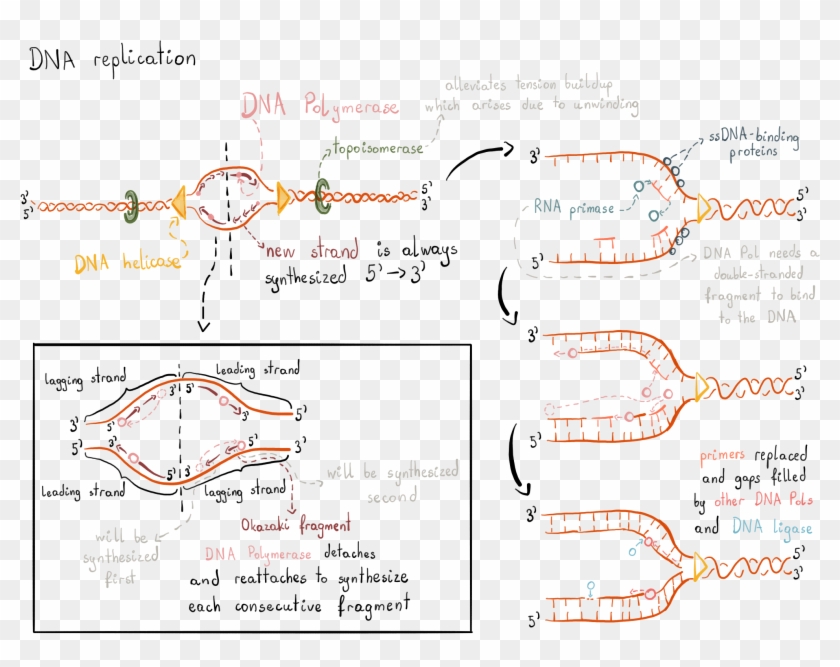 DNA replication
alleviates tension buildup
which arises due to unwinding
DNA Polymerase
topoisomerase
3'
5'
5'
3'
DNA helicase
new strand is always
synthesized 5' → 3'
3'
ssDNA-binding
proteins
RNA primase
5'
3'
5'
DNA Pol needs a
double-stranded
fragment to bind
to the DNA
lagging strand
leading strand
3'
5'
3'
5'
3'
5'
5'
3'
5'
3'
5'
3'
leading strand
lagging strand
will be synthesized
second
will be
synthesized
first
Okazaki fragment
DNA Polymerase detaches
and reattaches to synthesize
each consecutive fragment
3'
5'
3'
5'
primers replaced
and gaps filled
by other DNA Pols
and DNA ligase
3'
5'
3'
5'